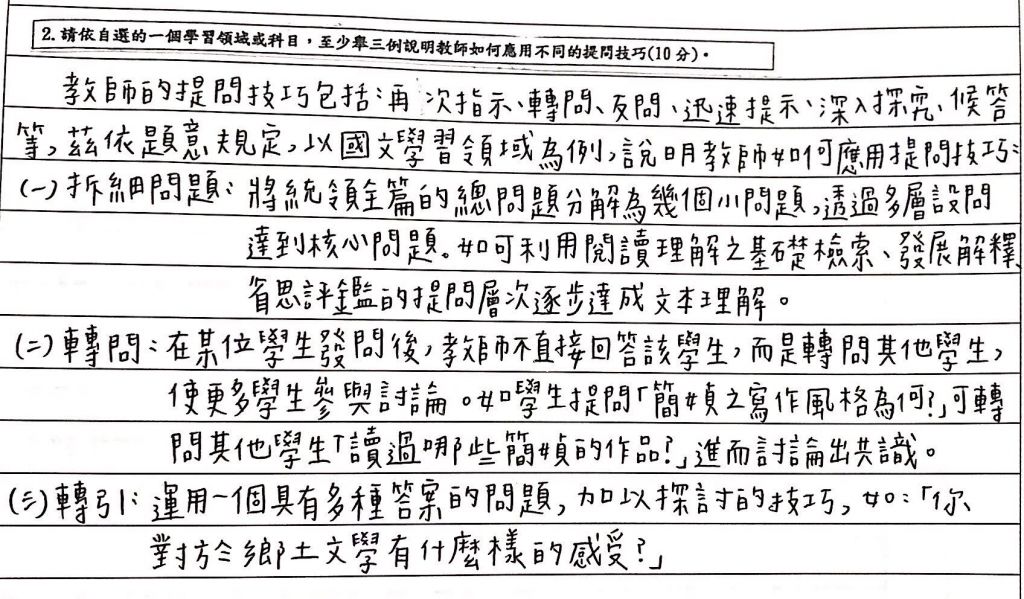 2.請依自選的一個學習領域或科目，至少舉三例說明教師如何應用不同的提問技巧(10分)。
教師的提問技巧包括:再次指示、轉問、反問、迅速提示、深入探究、候答
等,茲依題意規定,以國文學習領域為例,說明教師如何應用提問技巧:
(一)拆細問題: 將統領全篇的總問題分解為幾個小問題,透過多層設問
達到核心問題。如可利用閱讀理解之基礎檢索、發展解釋、
省思評鑑的提問層次逐步達成文本理解。
(二)轉問:在某位學生發問後,教師不直接回答該學生,而是轉問其他學生,
使更多學生參與討論。如學生提問「簡媜之寫作風格為何?」可轉
問其他學生「讀過哪些簡媜的作品?」進而討論出共識。
(三)轉引: 運用一個具有多種答案的問題,加以探討的技巧,如:「你
對於鄉土文學有什麼樣的感受?」